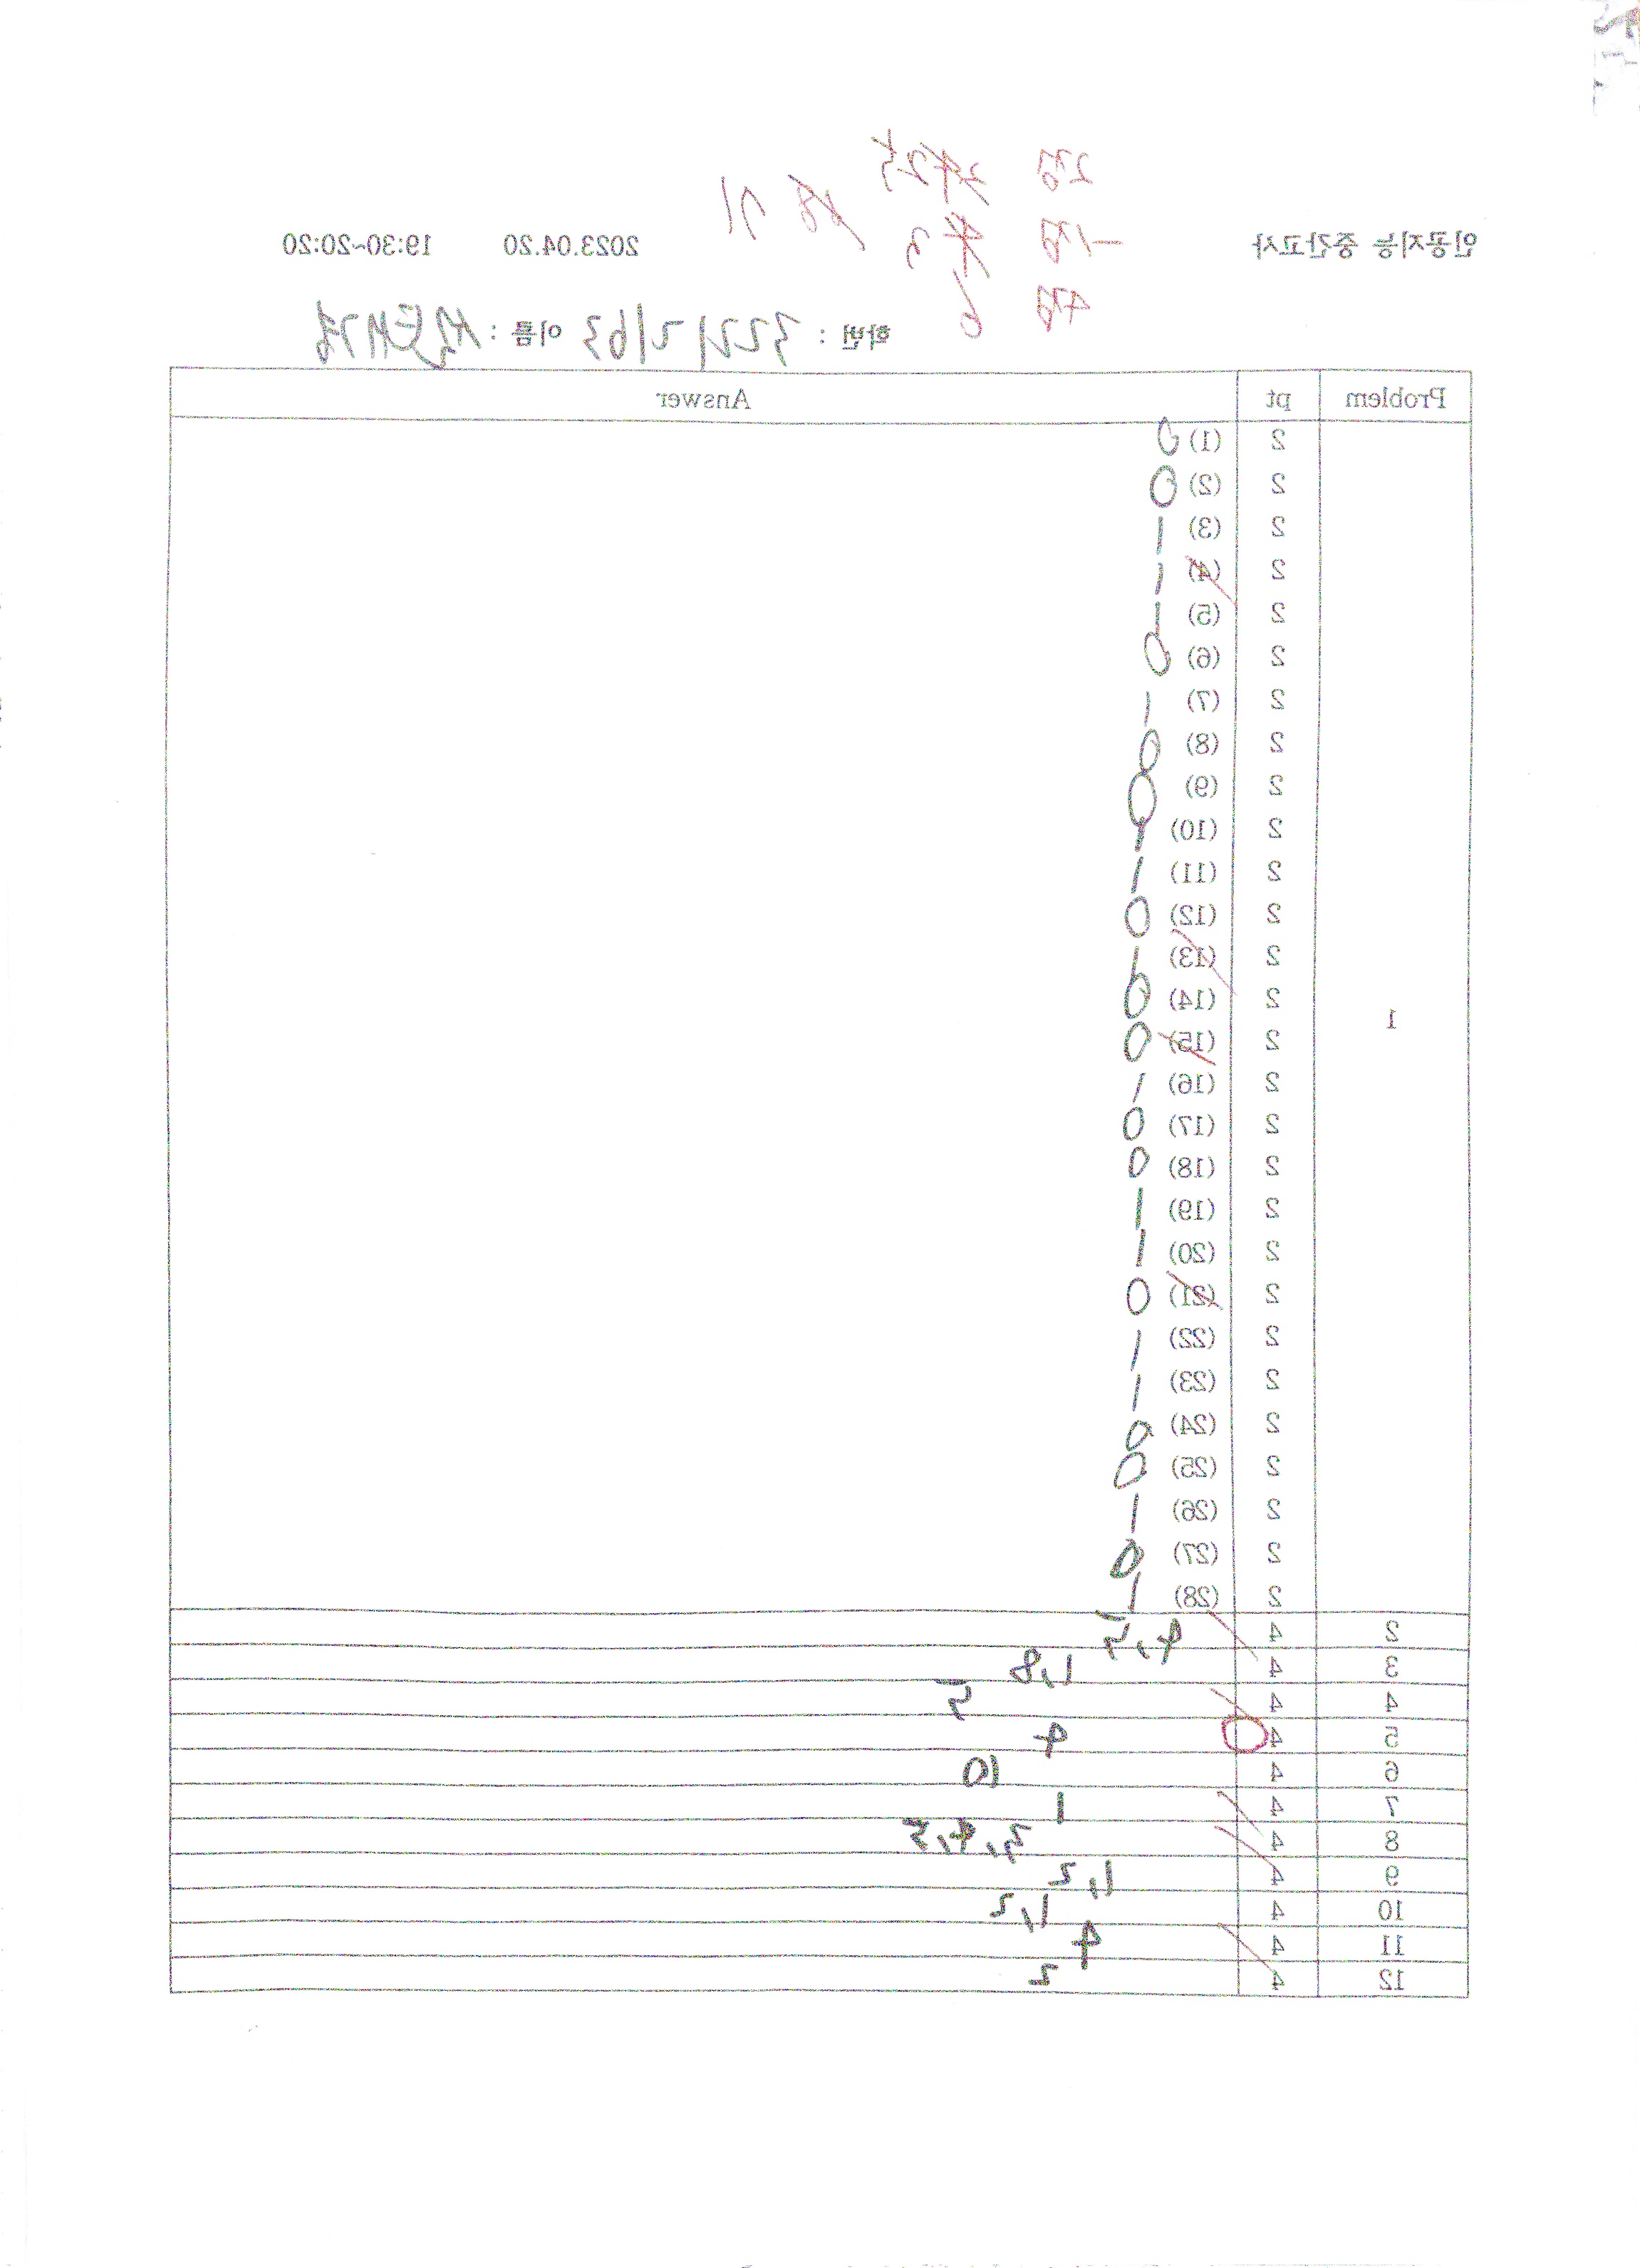 인공지능 중간고사 2023.04.20 19:30~20:20
2점
-1점
4점
학번 : 32212163 이름 :
Problem pt Answer
2 (1) 0
2 (2) 0
2 (3) 1
2 (4) 1
2 (5) 1
2 (6) 0
2 (7) 1
2 (8) 0
2 (9) 0
2 (10) 1
2 (11) 1
2 (12) 0
2 (13) 1
2 (14) 0
1 2 (15) 0
2 (16) 1
2 (17) 0
2 (18) 0
2 (19) 1
2 (20) 1
2 (21) 0
2 (22) 1
2 (23) 1
2 (24) 0
2 (25) 0
2 (26) 1
2 (27) 0
2 (28) 1
2 4 4,5
3 4 1,8
4 4 5
5 4 4
6 4 10
7 4 1
8 4 3,4,5
9 4 1,2
10 4 1,2
11 4 4
12 4 2